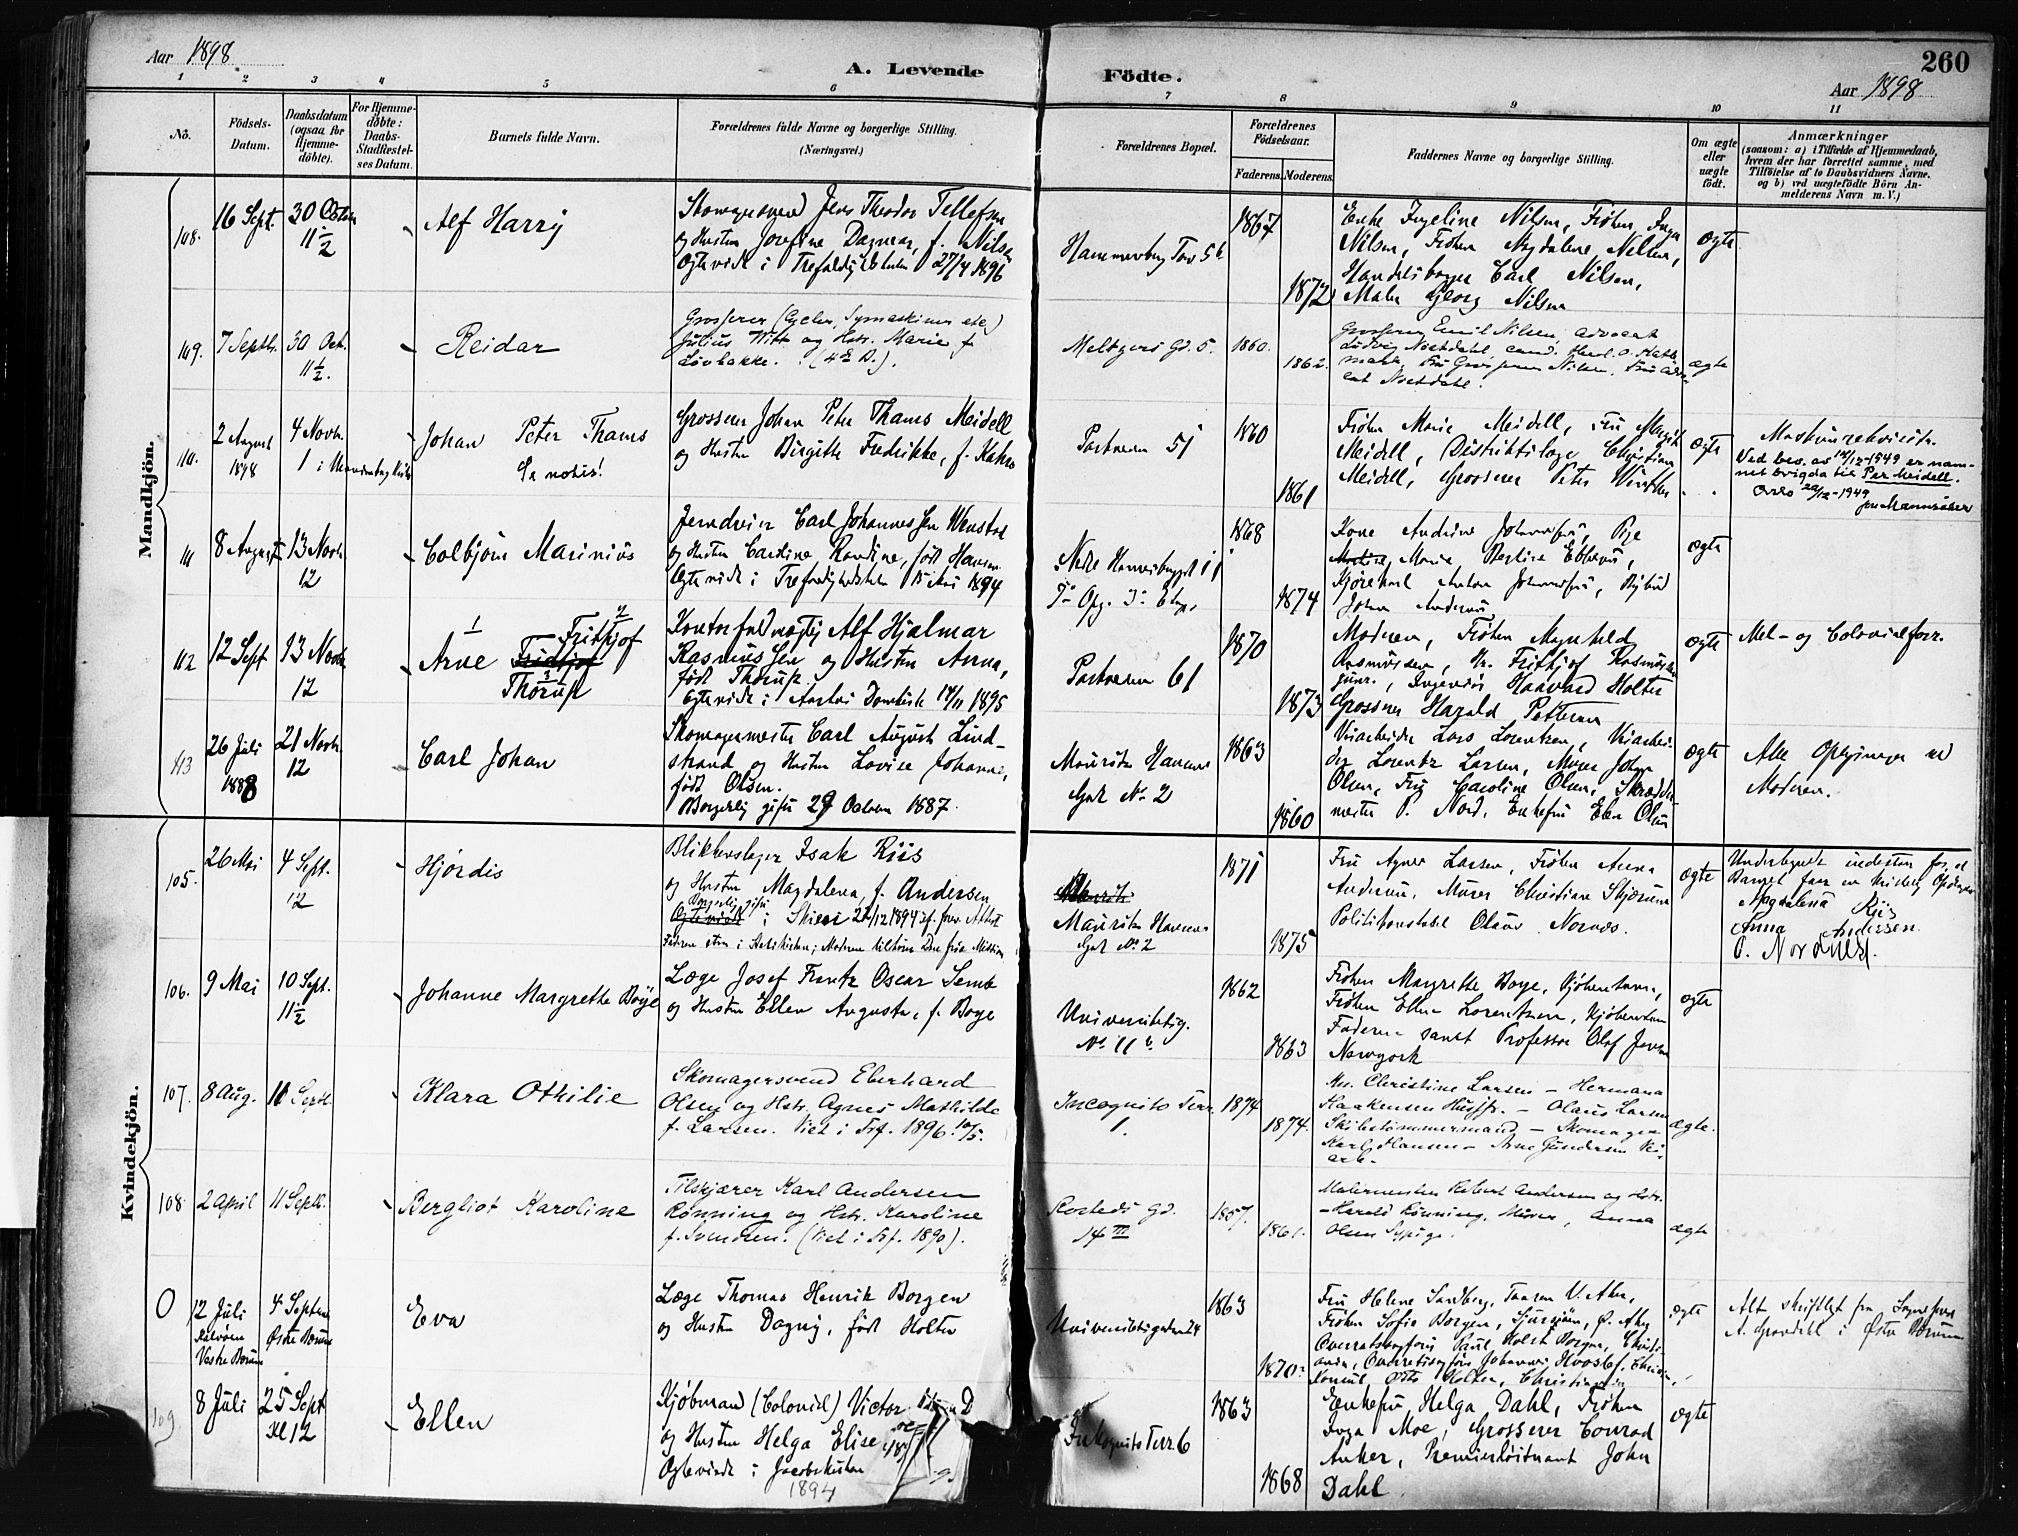 Aar 1898
A. Levende
Födte.
260
Aar 1898
1 2 3 4 5 6 7 8 9 10 11
No.
Födsels-
Datum.
Daabsdatum
(ogsaa for
Hjemme-
döbte).
For Hjemme-
döbte:
Daabs-
Stadfæstel-
ses Datum.
Barnets fulde Navn.
Forældrenes fulde Navne og borgerlige Stilling.
(Næringsvei.)
Forældrenes Bopæl.
Forældrenes
Födselsaar.
Faderens. Moderens.
Faddernes Navne og borgerlige Stilling.
Om ægte
eller
uægte
födt.
Anmærkninger
(saasom: a) i Tilfælde af Hjemmedaab,
hvem der har forrettet samme, med
Tilföielse af to Daabsvidners Navne.
og b) ved uægtefödte Börn An-
melderens Navn m. V.)
Mandkjön.
108. 16 Sept. 30 Octbr
11½
Alf Harry
Skomagersvend Jens Theodor Tellefsen
og Hustru Josefine Dagmar, f. Nilsen
Ægteviede i Trefoldigh 27/4 1896
Hammersborg Torv 5b
1867
1872
Enke Ingeline Nilsen, Frøken Inga
Nilsen, Frøken Magdalene Nilsen,
Carl Nilsen,
Maler Georg Nilsen
ægte
109. 7 Septbr. 30 Oct.
11½.
Reidar
Grosserer (Cycler, Symaskiner etc)
Julius Witt og Hstr. Marie f.
Løvbakke. (4de B.).
Meltzers Gd. 5.
1860.
1862.
Grosserer Emil Nilsen, Advocat
Ludvig Nostdahl, cand.
Fru Grosserer Nilsen, Fru
Nostdahl.
ægte
110. 2 August 4 Novbr.
1898 1 i
Johan Peter Thams
Se notis!
Grosserer Johan Peter Thams Meidell
og Hustru Birgitte Fredrikke, f.
Parkveien 51
1860
1861
Frøken Marie Meidell, Fru Margit
Meidell, Distriktslæge Christian
Meidell, Grosserer Peter
ægte
Maskinrekvisita.
Ved bev. av 12/12-1949 er nam-
net brigda til Per Meidell.
Oslo 20/12-1949
111 8 August 13 Novbr
12
Colbjørn Marinius
Jerndreier Carl Johannessen
og Hustru Cardine Randine, født Hansen
Ægteviede i Trefoldighedskirken 1894
Nedre 11
1868
1874
Kone Andrine Johannesen, Pige
Marie Bertine
Kjørekarl Anton Johannesen, Bybud
Johan Andersen
ægte
112 12 Sept 13 Novbr
12
1 2
Arne Fridtjof Frithjof
3
Thorup
Kontorfuldmægtig Alf Hjalmar
Rasmussen og Hustru Anna,
født Thorup.
Ægteviede i Aarhus Domkirke 14/11 1895
Parkveien 61
1870
1873
Moderen, Frøken Magnhild
Rasmussen, Hr. Frithjof Rasmussen
junr., Ingeniør Haavard Holter
Grosserer Harald Pettersen
ægte
Mel- og Colonialforr.
113 26 Juli 21 Novbr.
1888 12
Carl Johan
Skomagermester Carl August Lind-
strand og Hustru Lovise Johanne,
født Olsen.
Borgerlig gifte 29 October 1887.
Mauritz Hansens
Gade No 2
1863
1860
Lars Lorentzen,
Lorentz Larsen, Murer Johan
Olsen, Fru Caroline Olsen, Skrædder-
mester P. Nord, Enkefru Olsen
ægte
Alle Oplysninger ved
Moderen.
Kvindekjön.
105. 26 Mai 4 Sept.
12
Hjørdis
Blikkenslager Isak Riis
og Hustru Magdalena, f. Andersen
Borgerlig gifte
Ægteviede i Skien 22/12 1894
Mauritz
Mauritz Hansens
Gade No 2
1871
1875
Fru Agnes Larsen, Frøken Anna
Andersen, Murer Christian
Politikonstabel Olaus Nornæs.
ægte
Magdalena Riis
Anna Andersen.
O.
106. 9 Mai 10 Sept.
11½
Johanne Margrethe Boye
Læge Josef Frantz Oscar Semb
og Hustru Ellen Augusta, f. Boye
Universitetsg.
No 11b.
1862
1863
Frøken Margrethe Boye, Kjøbenhavn,
Frøken Ellen Lorentzen, Kjøbenhavn
Faderen samt Professor Olaf Jensen
Newyork
ægte
107. 8 Aug. 11 Septbr.
Klara Othilie
Skomagersvend Eberhard
Olsen og Hstr. Agnes Mathilde
f. Larsen. Viet i Trf. 1896 10/5.
Incognito Terr.
1.
1874
1874.
Christine Larsen - Hermana
Haakensen Husjfr. - Olaus Larsen
Skibstømmermand - Skomager
Karl Hansen - Arne Gundersen
ægte.
108. 2 April 11 Septbr.
Bergliot Karoline
Tilskjærer Karl Andersen
Rønning og Hstr. Karoline
f. Svendsen. (Viet i Trf. 1890).
Rosteds Gd.
14 III
1857.
1861.
Malermester Robert Andersen og Hstr.
- Harald Rønning, Murer, Anna
Olsen Sypige.
ægte
0 12 Juli 4 Septbr
Vestre Bærum Østre Bærum
Eva
Læge Thomas Henrik Borgen
og Hustru Dagny, født Holter
Universitetsgaden 24
1863
1870.
Fru Helene Sandberg,
Frøken Sofie Borgen,
Overretssagfører Paul Holst Borgen,
Overretssagfører Johannes
Consul Otto Holter, Christiania,
ægte
Alt skriftligt fra Sogneprest
A. Grøndahl i Østre Bærum
109 8 Juli 25 Sept
Kl 12
Ellen
Kjøbmand (Colonial) Victor
og Hustru Helga Elise
Ægteviede i Jacobskirken
1894
Inkognito Terr. 6
1863
1868
Enkefru Helga Dahl, Frøken
Inga Moe, Grosserer Conrad
Anker, Premierløitnant John
Dahl.
ægte